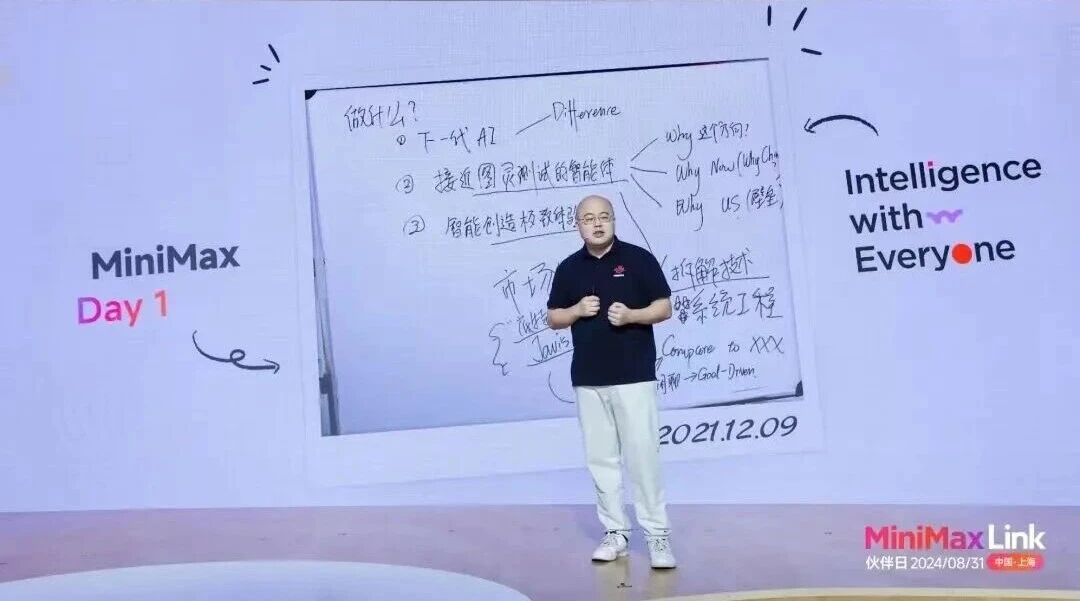 做什么?
① 下一代 AI
Difference
② 接近图灵测试的智能体
Why 这个方向?
Why Now (Why Cha
Why US (壁垒)
② 智能创造极致体验
市场
拆解技术
系统工程
Javis
Compare to XXX
闲聊→Goal-Driven
2021.12.09
MiniMax
Day 1
Intelligence
with
Everyone
MiniMax Link
伙伴日 2024/08/31 中国·上海